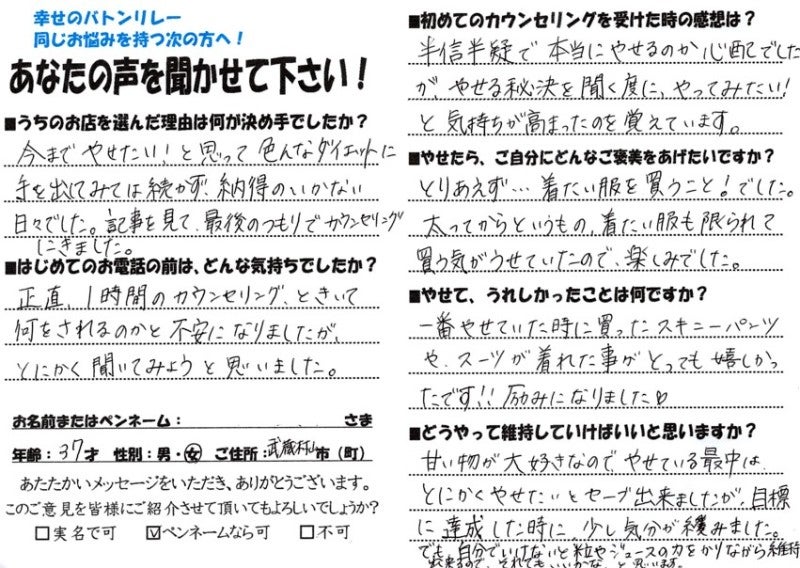 幸せのバトンリレー
同じお悩みを持つ次の方へ!
あなたの声を聞かせて下さい!
■うちのお店を選んだ理由は何が決め手でしたか?
今まで やせたい!と思って 色んなダイエットに
手を出してみては続かず、納得のいかない
日々でした。記事を見て、最後のつもりでカウンセリング
にきました。
■はじめてのお電話の前は、どんな気持ちでしたか?
正直、1時間のカウンセリング、ときいて
何をされるのかと 不安になりましたが、
とにかく 聞いてみようと 思いました。
お名前またはペンネーム: さま
年齢:37才 性別:男・女 ご住所:武蔵村山市(町)
あたたかいメッセージをいただき、ありがとうございます。
このご意見を皆様にご紹介させて頂いてもよろしいでしょうか?
□実名で可 ☑ペンネームなら可 □不可
■初めてのカウンセリングを受けた時の感想は?
半信半疑で 本当にやせるのか心配でした
が、やせる秘決を聞く度に、やってみたい!
と 気持ちが高まったのを 覚えています。
■やせたら、ご自分にどんなご褒美をあげたいですか?
とりあえず… 着たい服を買うこと!でした。
太ってからというもの、着たい服も限られて
買う気がうせていたので、楽しみでした。
■やせて、うれしかったことは何ですか?
一番やせていた時に買ったスキニーパンツ
や、スーツが着れた事がとっても嬉しかっ
たです!!励みになりました♡
■どうやって維持していけばいいと思いますか?
甘い物が大好きなので、やせている最中は、
とにかくやせたいとセーブ出来ましたが、目標
に達成した時に 少し気分が緩みました。
でも、自分でいけないと粒やジュースの力をかりながら維持
出来るので、それでもいいかな、と思います。